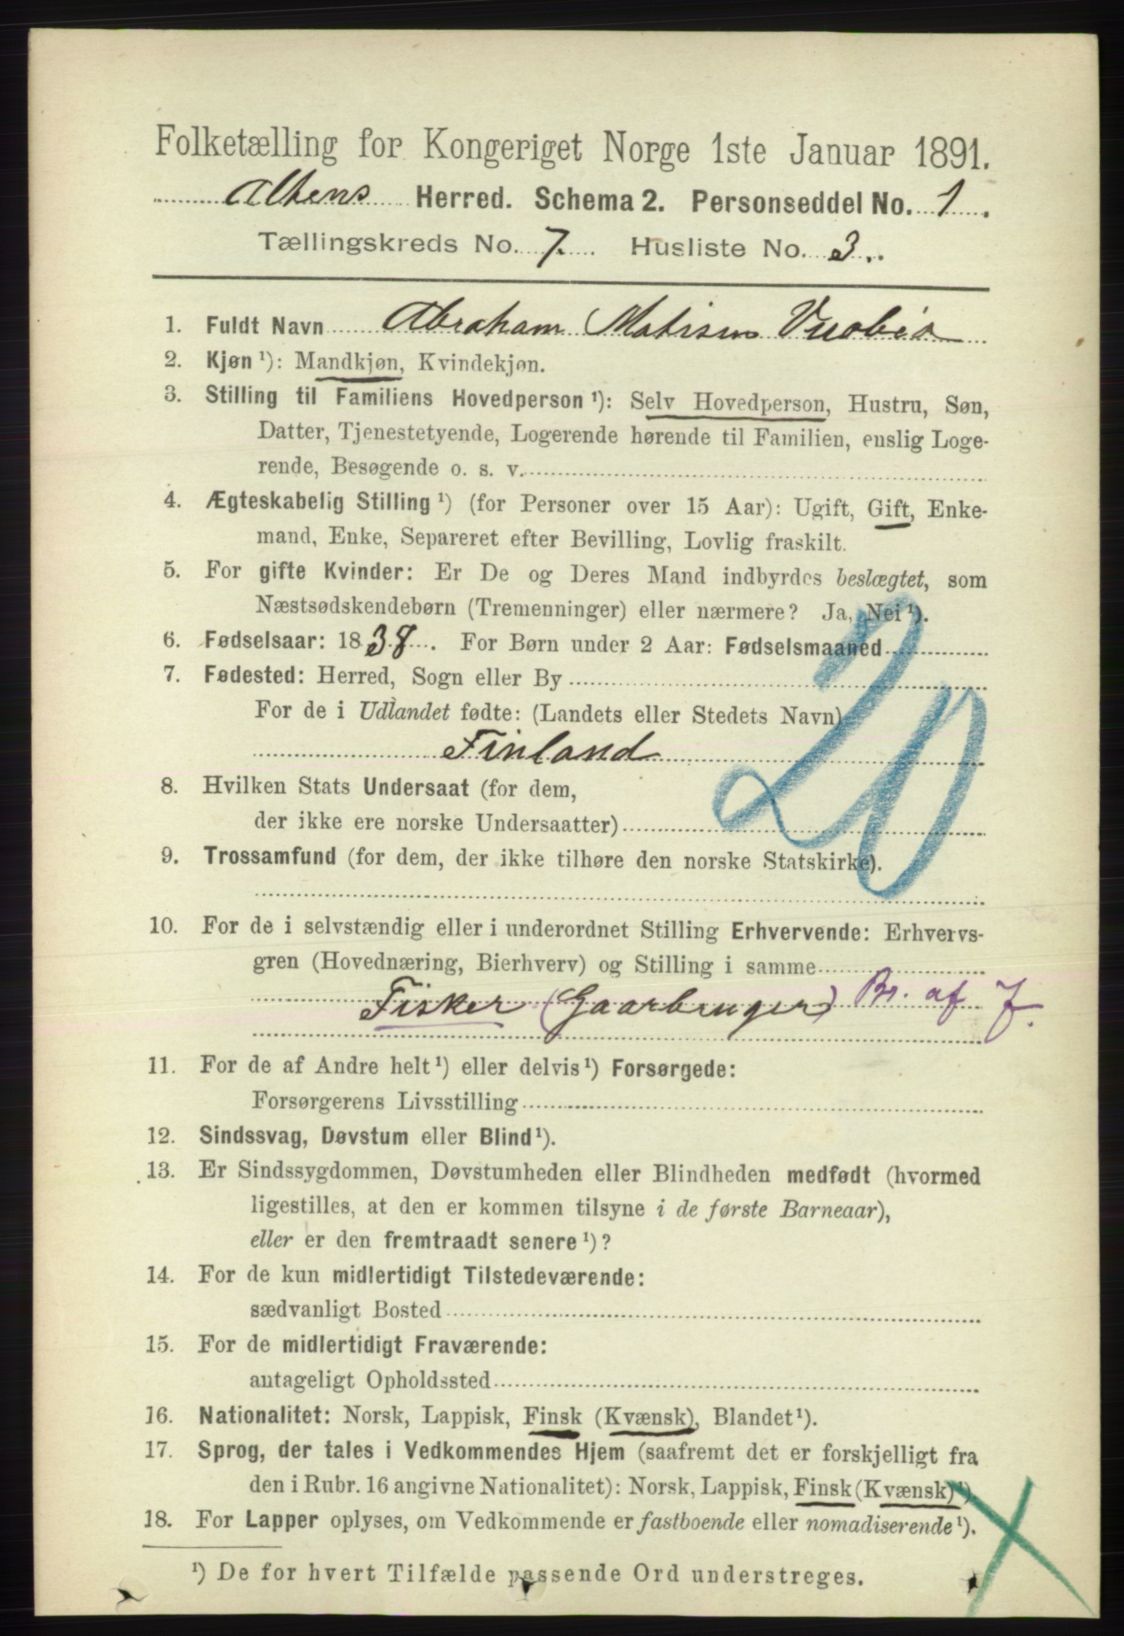 Folketælling for Kongeriget Norge 1ste Januar 1891.
Altens Herred. Schema 2. Personseddel No. 1.
Tællingskreds No. 7. Husliste No. 3.
1. Fuldt Navn Abraham Matisen
2. Kjøn ¹): Mandkjøn, Kvindekjøn.
3. Stilling til Familiens Hovedperson ¹): Selv Hovedperson, Hustru, Søn,
Datter, Tjenestetyende, Logerende hørende til Familien, enslig Loge-
rende, Besøgende o. s. v.
4. Ægteskabelig Stilling ¹) (for Personer over 15 Aar): Ugift, Gift, Enke-
mand, Enke, Separeret efter Bevilling, Lovlig fraskilt.
5. For gifte Kvinder: Er De og Deres Mand indbyrdes beslægtet, som
Næstsødskendebørn (Tremenninger) eller nærmere? Ja, Nei ¹).
6. Fødselsaar: 1838. For Børn under 2 Aar: Fødselsmaaned
7. Fødested: Herred, Sogn eller By
For de i Udlandet fødte: (Landets eller Stedets Navn)
Finland
20
8. Hvilken Stats Undersaat (for dem,
der ikke ere norske Undersaatter)
9. Trossamfund (for dem, der ikke tilhøre den norske Statskirke).
10. For de i selvstændig eller i underordnet Stilling Erhvervende: Erhvervs-
gren (Hovednæring, Bierhverv) og Stilling i samme
Fisker (Gaarbruger) Br. af J.
11. For de af Andre helt ¹) eller delvis ¹) Forsørgede:
Forsørgerens Livsstilling
12. Sindssvag, Døvstum eller Blind ¹).
13. Er Sindssygdommen, Døvstumheden eller Blindheden medfødt (hvormed
ligestilles, at den er kommen tilsyne i de første Barneaar),
eller er den fremtraadt senere ¹)?
14. For de kun midlertidigt Tilstedeværende:
sædvanligt Bosted
15. For de midlertidigt Fraværende:
antageligt Opholdssted
16. Nationalitet: Norsk, Lappisk, Finsk (Kvænsk), Blandet ¹).
17. Sprog, der tales i Vedkommendes Hjem (saafremt det er forskjelligt fra
den i Rubr. 16 angivne Nationalitet): Norsk, Lappisk, Finsk (Kvænsk) ¹).
18. For Lapper oplyses, om Vedkommende er fastboende eller nomadiserende ¹).
¹) De for hvert Tilfælde passende Ord understreges.